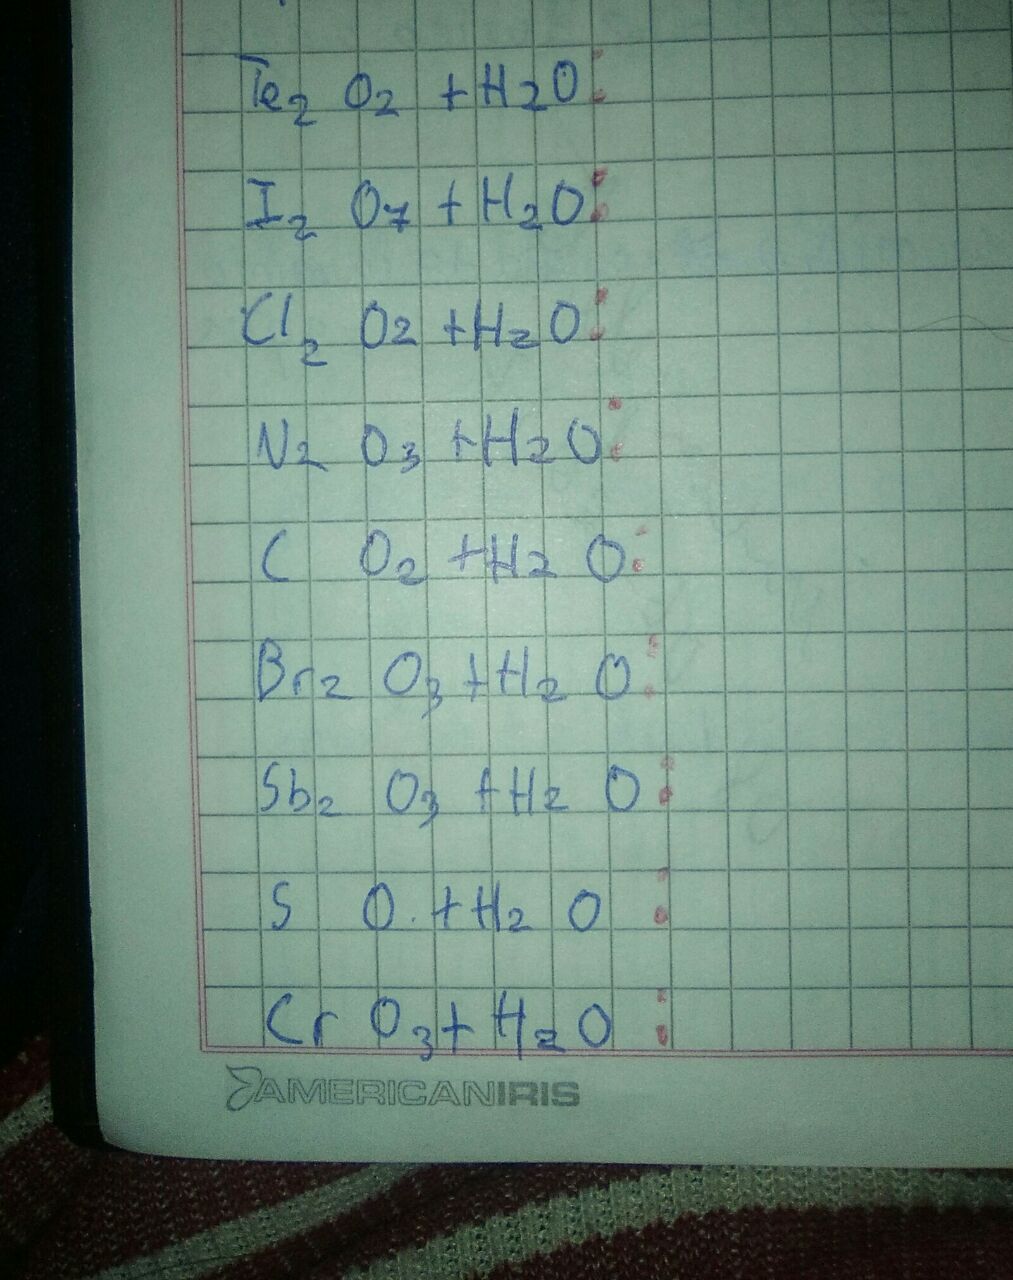 Te2 O2 + H2O:
I2 O7 + H2O:
Cl2 O2 + H2O:
N2 O3 + H2O:
C O2 + H2 O:
Br2 O3 + H2 O:
Sb2 O3 + H2 O:
S O. + H2 O :
Cr O3 + H2 O :
AMERICANIRIS